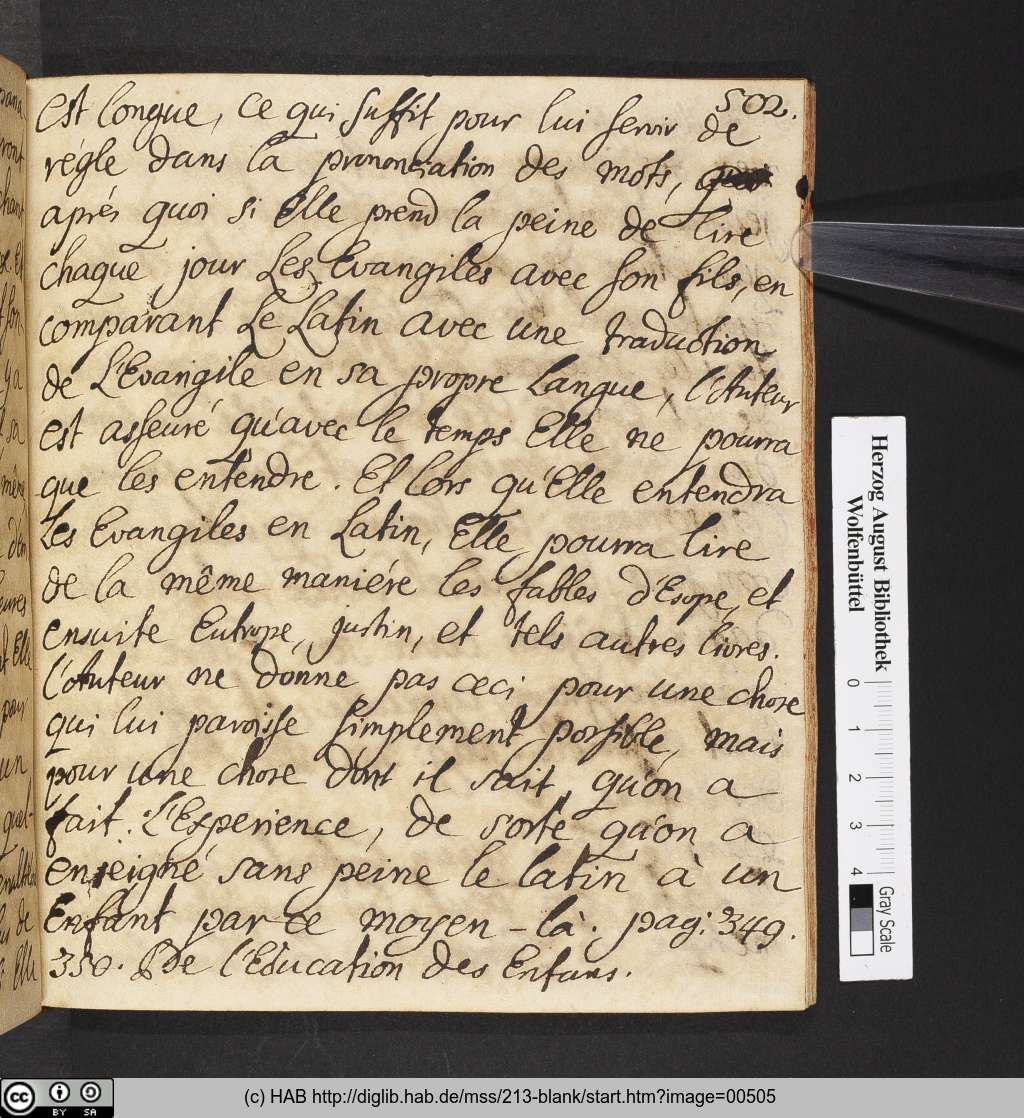 502.
est longue, ce qui suffit pour lui servir de
régle dans la prononciation des mots,
aprés quoi si Elle prend la peine de lire
chaque jour Les Evangiles avec son fils, en
comparant Le Latin avec une traduction
de L'Evangile en sa propre Langue, l'Auteur
est asseuré qu'avec le temps Elle ne pourra
que les entendre. Et lors qu'Elle entendra
Les Evangiles en Latin, Elle pourra lire
de la même maniére les fables d'Esope, et
ensuite Eutrope, justin, et tels autres livres.
l'Auteur ne donne pas ceci pour une chose
qui lui paroisse simplement possible, mais
pour une chose dont il sait, qu'on a
fait. L'Experience, de sorte qu'on a
enseigné sans peine le latin à un
Enfant par ce moyen-là. pag: 349.
350. De l'Education des Enfans.
pana
ront
même
eures
pour
un
quel-
de
Elle
Herzog August Bibliothek
Wolfenbüttel
0 1 2 3 4
Gray Scale
cc BY SA
(c) HAB http://diglib.hab.de/mss/213-blank/start.htm?image=00505